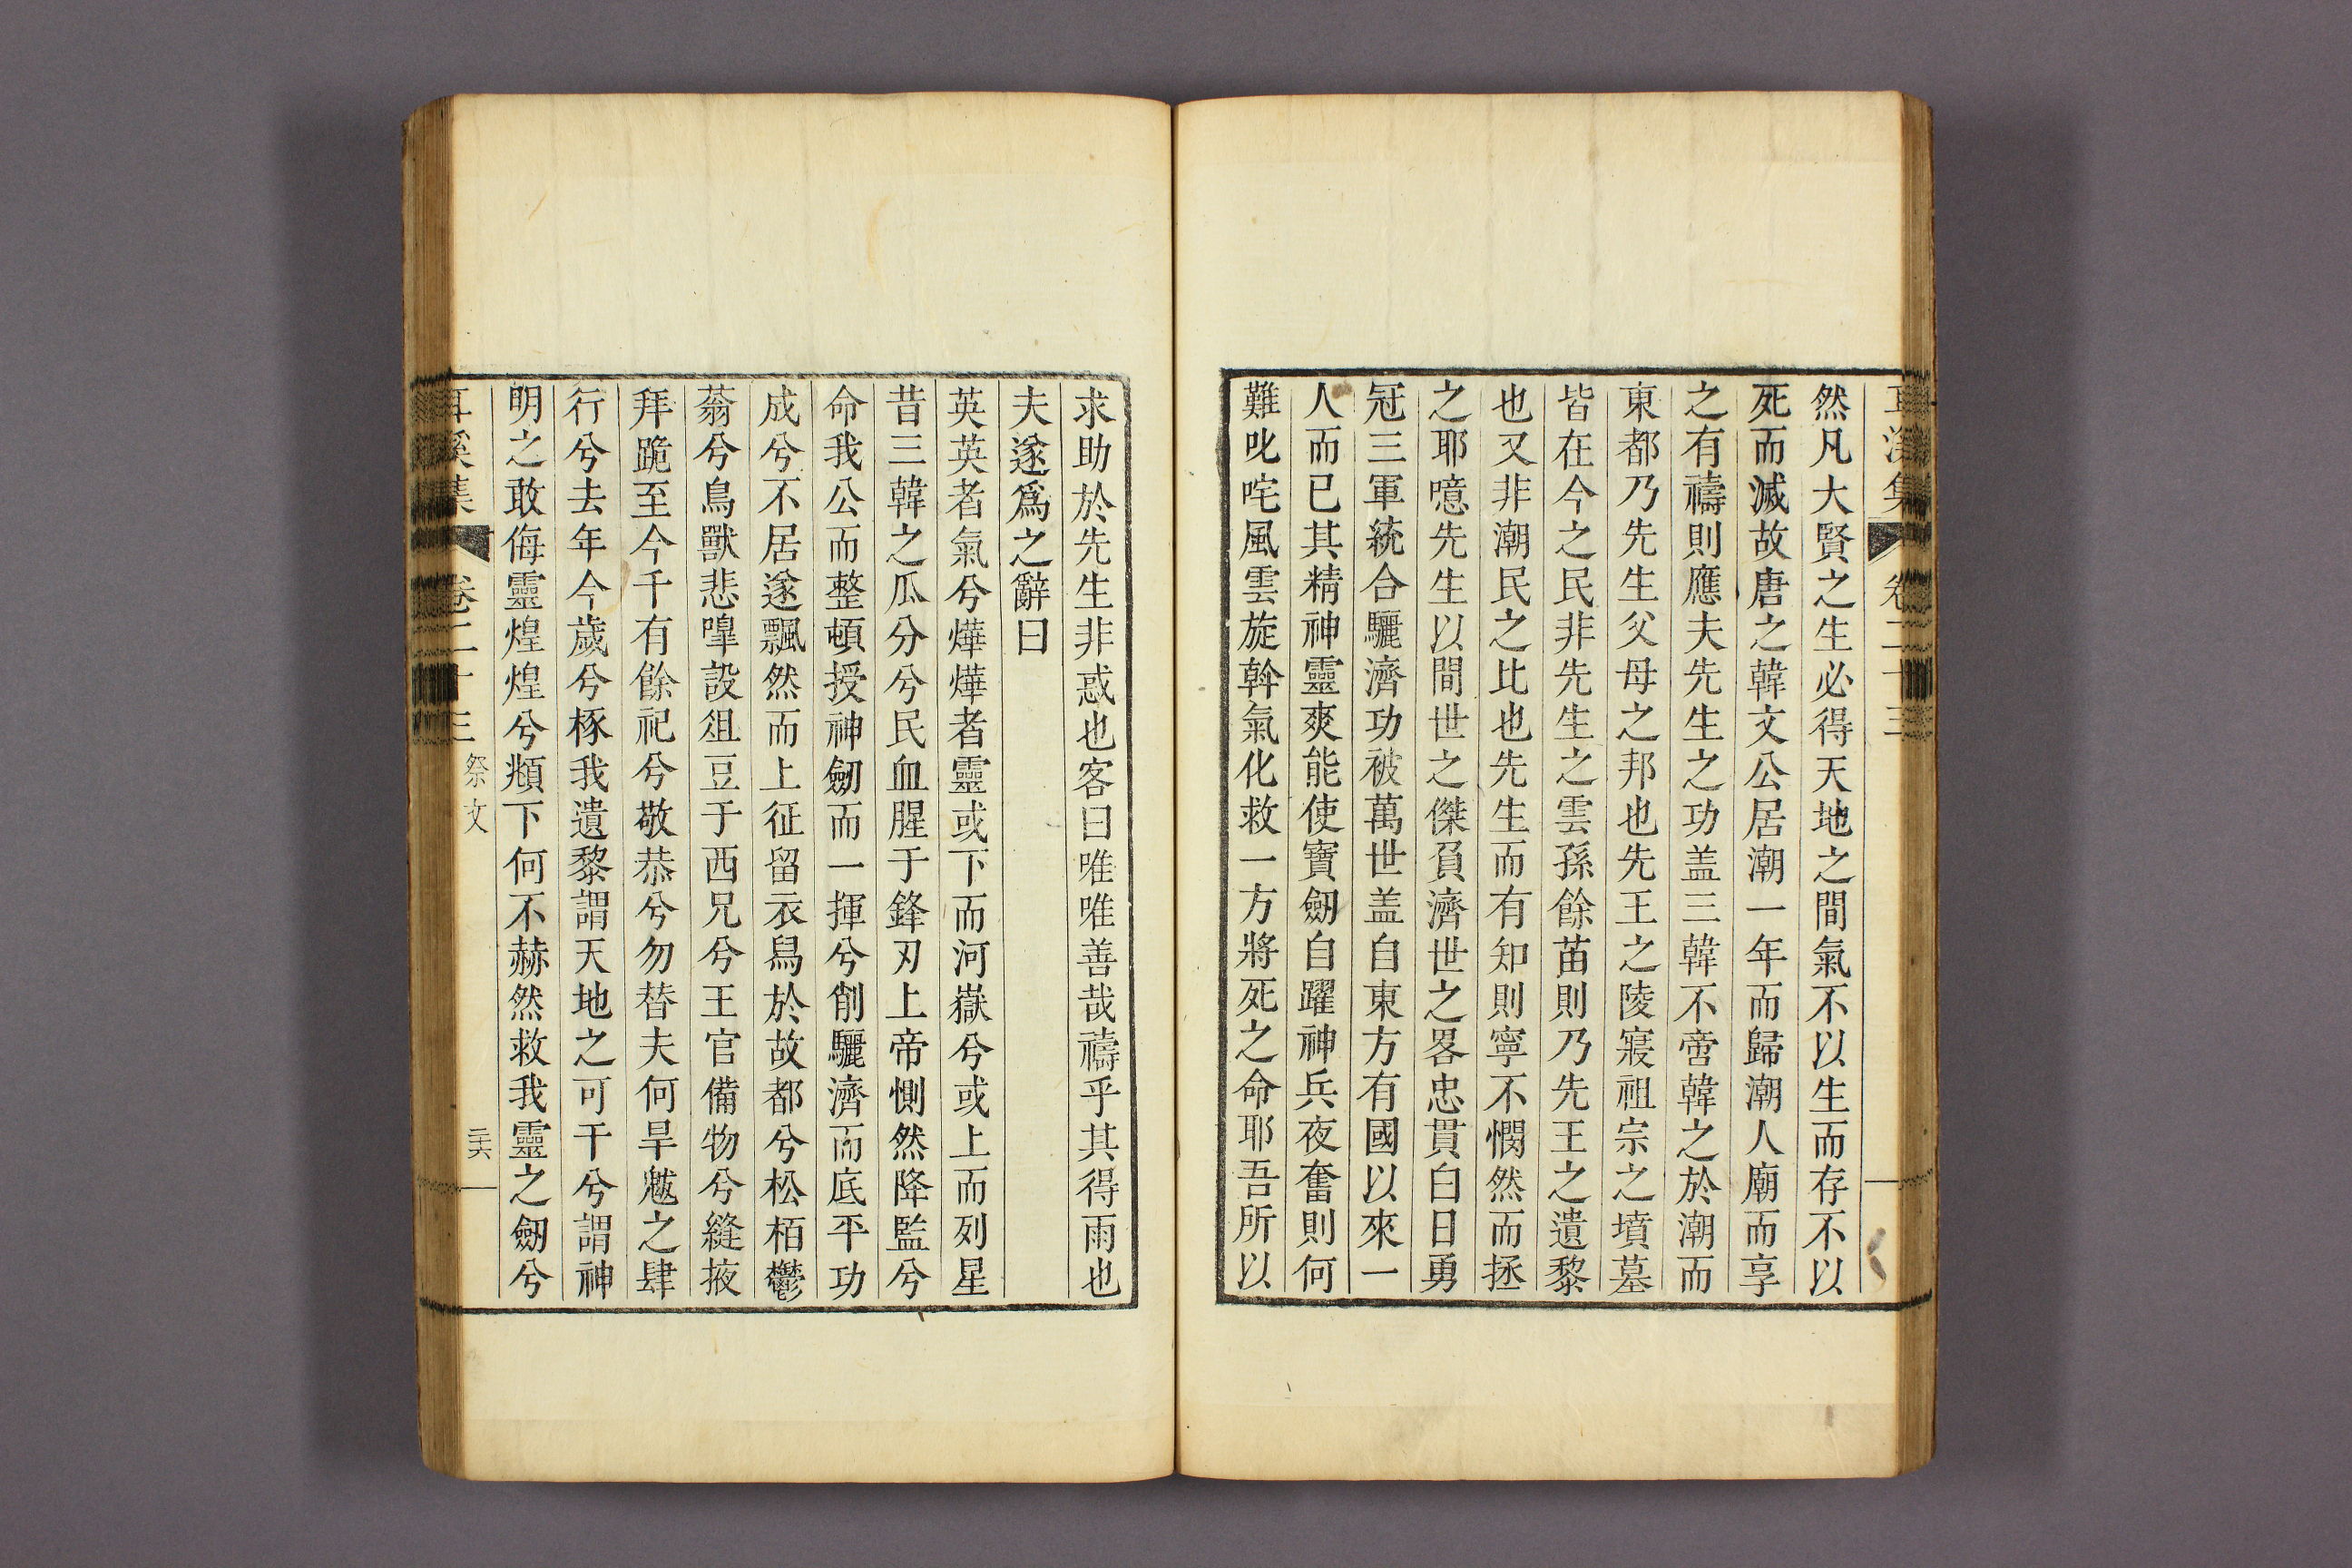 耳溪集 卷二十三
然凡大賢之生必得天地之間氣不以生而存不以
死而滅故唐之韓文公居潮一年而歸潮人廟而享
之有禱則應夫先生之功盖三韓不啻韓之於潮而
東都乃先生父母之邦也先王之陵寢祖宗之墳墓
皆在今之民非先生之雲孫餘苗則乃先王之遺黎
也又非潮民之比也先生而有知則寧不憫然而拯
之耶噫先生以間世之傑負濟世之畧忠貫白日勇
冠三軍統合驪濟功被萬世盖自東方有國以來一
人而已其精神靈爽能使寶劒自躍神兵夜奮則何
難叱咤風雲旋斡氣化救一方將死之命耶吾所以
求助於先生非惑也客曰唯唯善哉禱乎其得雨也
夫遂爲之辭曰
英英者氣兮燁燁者靈或下而河嶽兮或上而列星
昔三韓之瓜分兮民血腥于鋒刃上帝惻然降監兮
命我公而整頓授神劒而一揮兮削驪濟而底平功
成兮不居遂飄然而上征留衣舃於故都兮松栢鬱
蓊兮鳥獸悲嘷設俎豆于西兄兮王官備物兮縫掖
拜跪至今千有餘祀兮敬恭兮勿替夫何旱魃之肆
行兮去年今歲兮椓我遺黎謂天地之可干兮謂神
明之敢侮靈煌煌兮頫下何不赫然救我靈之劒兮
耳溪集 卷二十三 祭文 二十六